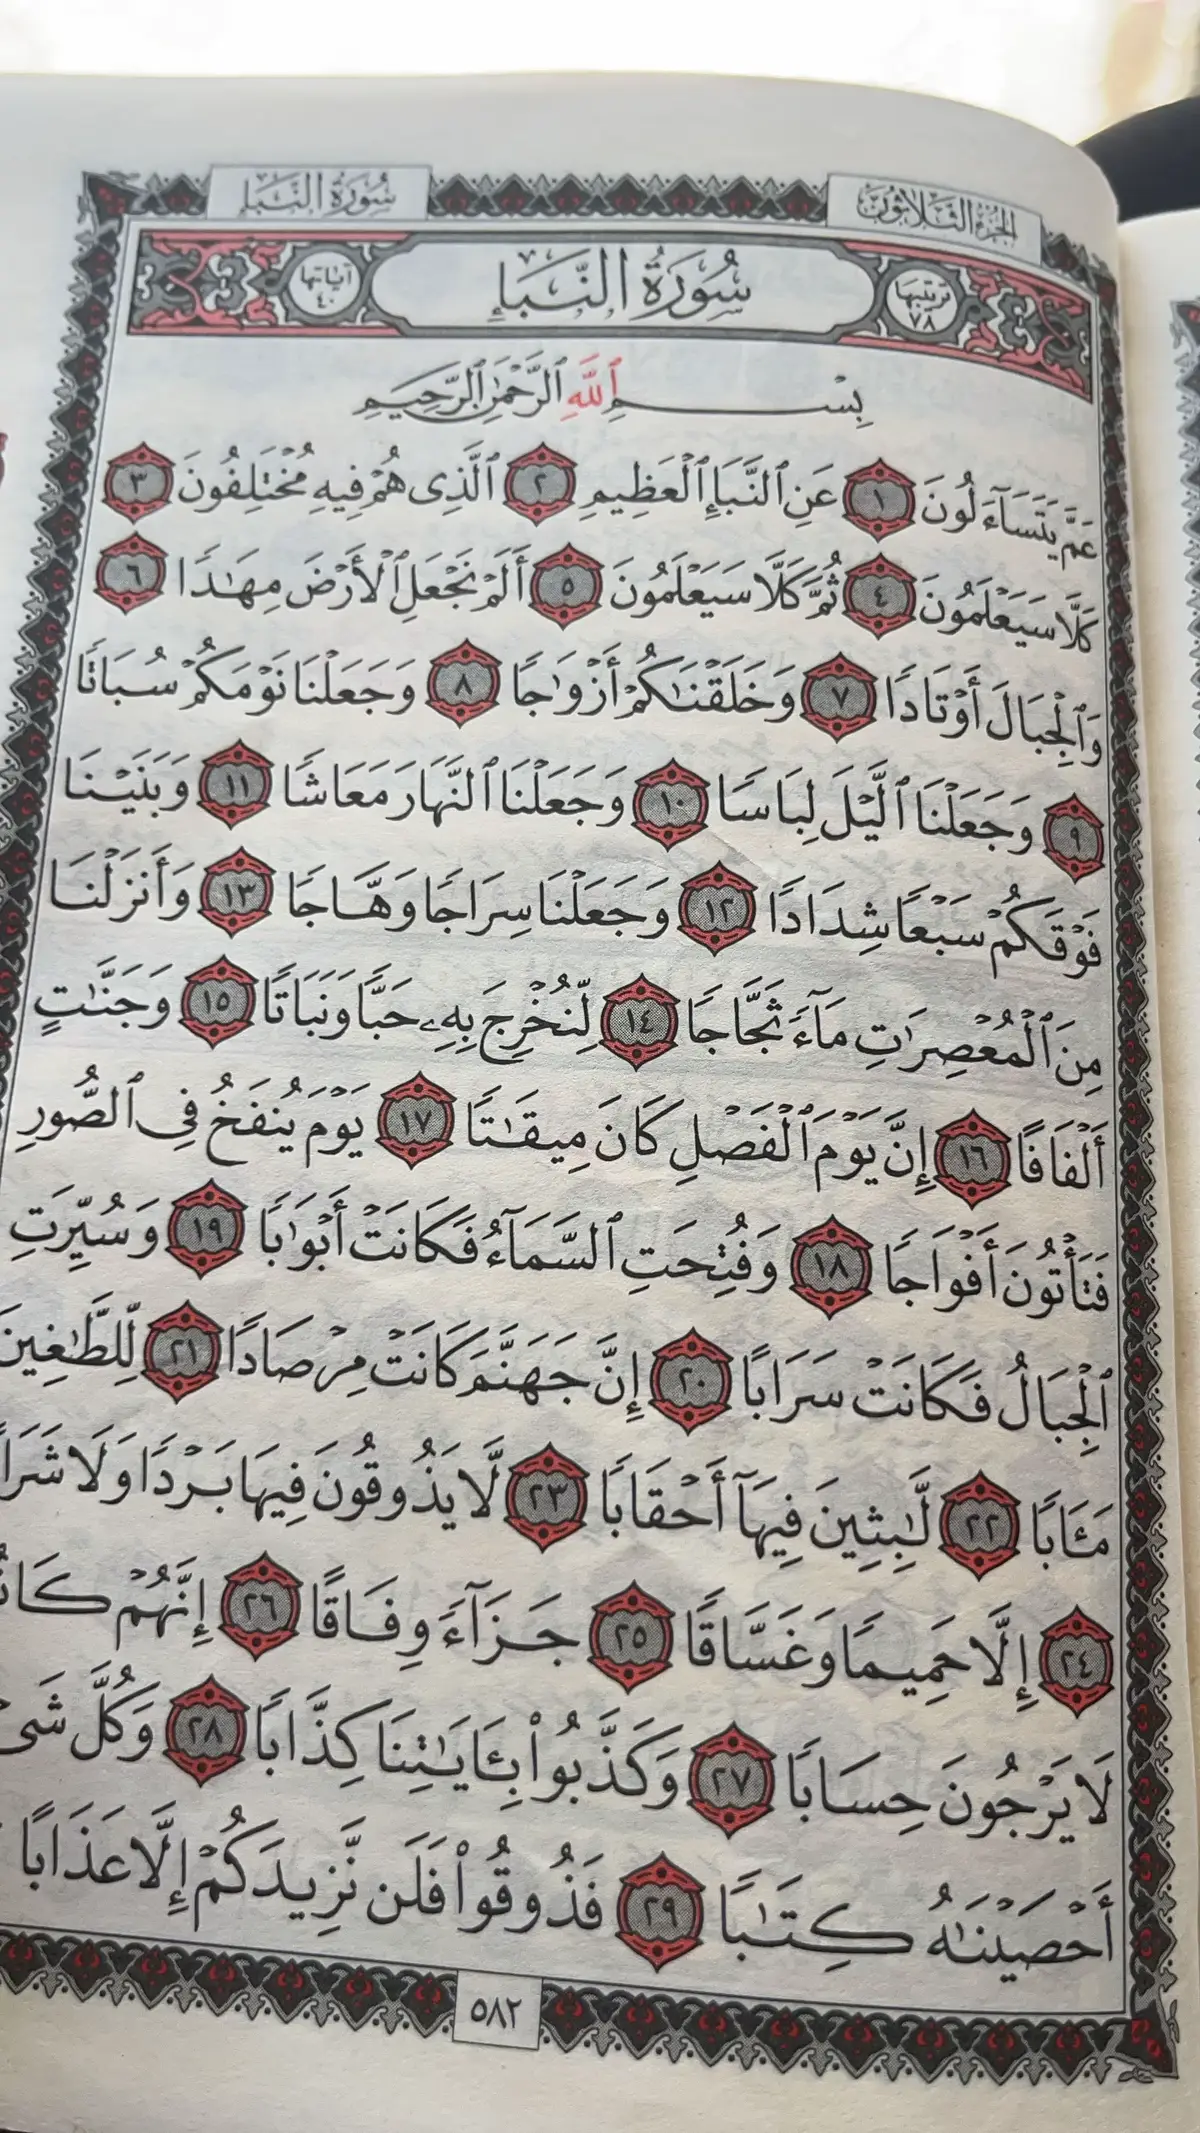 الجزء الثلاثون
سورة النبإ
ترتيبها ٧٨
سُورَةُ النَّبَإِ
آياتها ٤٠
بِسْمِ ٱللَّهِ ٱلرَّحْمَٰنِ ٱلرَّحِيمِ
عَمَّ يَتَسَآءَلُونَ ١ عَنِ ٱلنَّبَإِ ٱلْعَظِيمِ ٢ ٱلَّذِى هُمْ فِيهِ مُخْتَلِفُونَ ٣
كَلَّا سَيَعْلَمُونَ ٤ ثُمَّ كَلَّا سَيَعْلَمُونَ ٥ أَلَمْ نَجْعَلِ ٱلْأَرْضَ مِهَٰدًا ٦
وَٱلْجِبَالَ أَوْتَادًا ٧ وَخَلَقْنَٰكُمْ أَزْوَٰجًا ٨ وَجَعَلْنَا نَوْمَكُمْ سُبَاتًا
٩ وَجَعَلْنَا ٱلَّيْلَ لِبَاسًا ١٠ وَجَعَلْنَا ٱلنَّهَارَ مَعَاشًا ١١ وَبَنَيْنَا
فَوْقَكُمْ سَبْعًا شِدَادًا ١٢ وَجَعَلْنَا سِرَاجًا وَهَّاجًا ١٣ وَأَنزَلْنَا
مِنَ ٱلْمُعْصِرَٰتِ مَآءً ثَجَّاجًا ١٤ لِّنُخْرِجَ بِهِۦ حَبًّا وَنَبَاتًا ١٥ وَجَنَّٰتٍ
أَلْفَافًا ١٦ إِنَّ يَوْمَ ٱلْفَصْلِ كَانَ مِيقَٰتًا ١٧ يَوْمَ يُنفَخُ فِى ٱلصُّورِ
فَتَأْتُونَ أَفْوَاجًا ١٨ وَفُتِحَتِ ٱلسَّمَآءُ فَكَانَتْ أَبْوَٰبًا ١٩ وَسُيِّرَتِ
ٱلْجِبَالُ فَكَانَتْ سَرَابًا ٢٠ إِنَّ جَهَنَّمَ كَانَتْ مِرْصَادًا ٢١ لِّلطَّٰغِينَ
مَـَٔابًا ٢٢ لَّٰبِثِينَ فِيهَآ أَحْقَابًا ٢٣ لَّا يَذُوقُونَ فِيهَا بَرْدًا وَلَا
٢٤ إِلَّا حَمِيمًا وَغَسَّاقًا ٢٥ جَزَآءً وِفَاقًا ٢٦ إِنَّهُمْ
لَا يَرْجُونَ حِسَابًا ٢٧ وَكَذَّبُوا۟ بِـَٔايَٰتِنَا كِذَّابًا ٢٨ وَكُلَّ شَىْ
أَحْصَيْنَٰهُ كِتَٰبًا ٢٩ فَذُوقُوا۟ فَلَن نَّزِيدَكُمْ إِلَّا عَذَابًا
٥٨٢